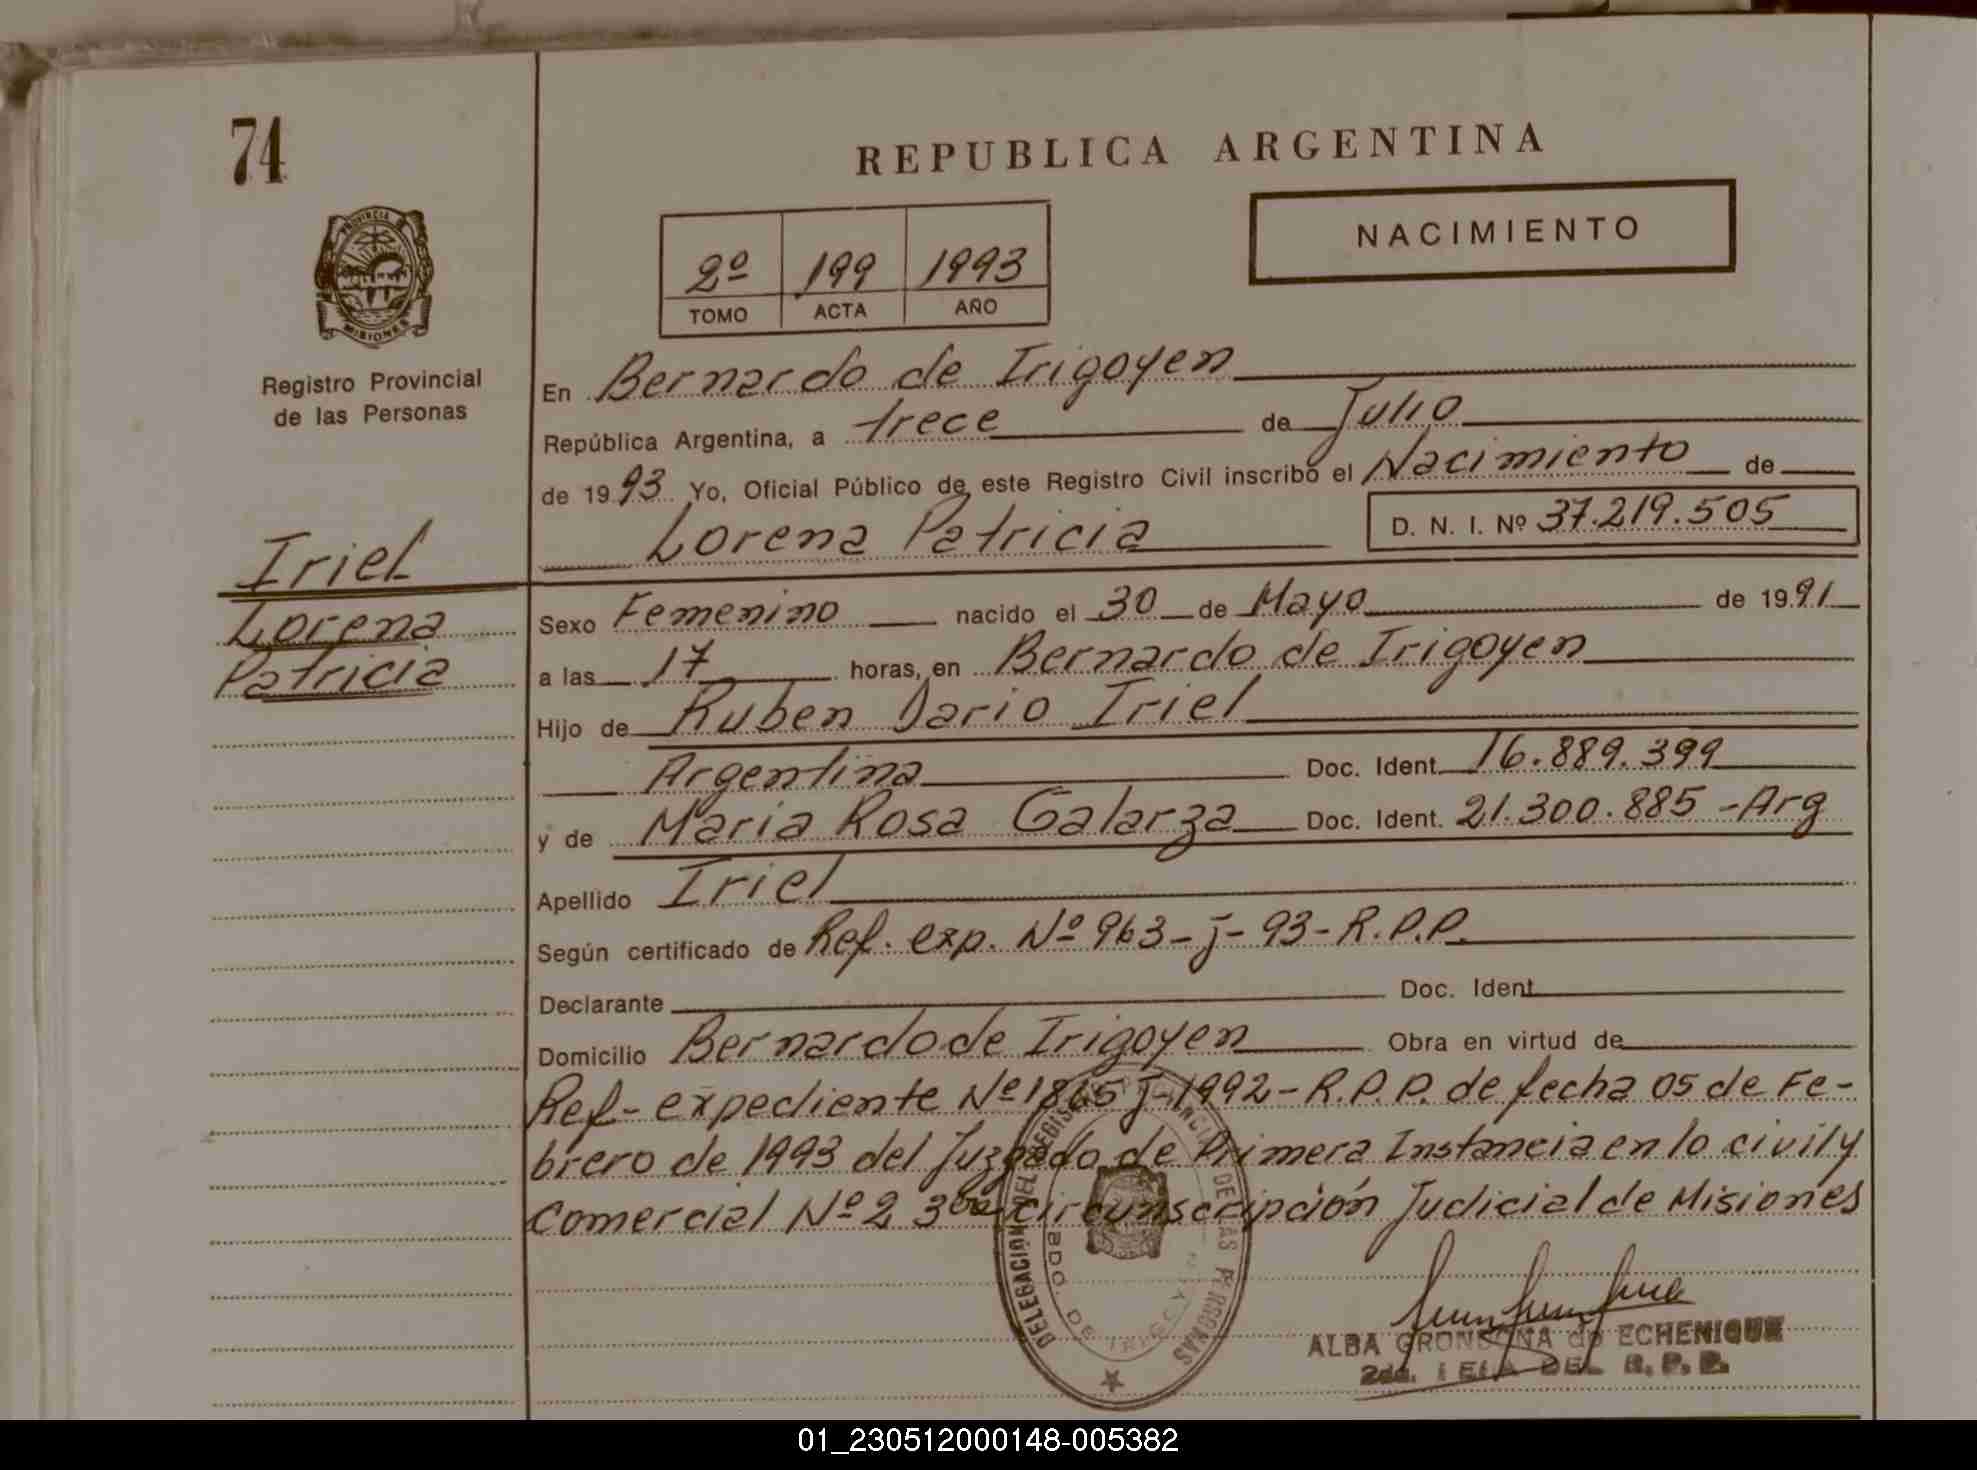 74
REPUBLICA ARGENTINA
PROVINCIA
MISIONES
NACIMIENTO
2º 199 1993
TOMO ACTA AÑO
Registro Provincial
de las Personas
En Bernardo de Irigoyen
República Argentina, a trece de Julio
de 1993 Yo, Oficial Público de este Registro Civil inscribó el Nacimiento de
Lorena Patricia D. N. I. Nº 37.219.505
Iriel
Lorena
Patricia
Sexo Femenino nacido el 30 de Mayo de 1991
a las 17 horas, en Bernardo de Irigoyen
Hijo de Ruben Dario Iriel
Argentina Doc. Ident. 16.889.399
y de Maria Rosa Galarza Doc. Ident. 21.300.885 - Arg
Apellido Iriel
Según certificado de Ref. exp. Nº 963 - J - 93 - R.P.P.
Declarante Doc. Ident.
Domicilio Bernardo de Irigoyen Obra en virtud de
Ref - expediente Nº 1865 J - 1992 - R.P.P. de fecha 05 de Fe-
brero de 1993 del Juzgado de Primera Instancia en lo civil y
Comercial Nº 2 3ra circunscripción Judicial de Misiones
DELEGACION DEL REGISTRO PROVINCIAL DE LAS PERSONAS
BDO. DE IRIGOYEN
ALBA de ECHENIQUE
2da. DEL R.P.P.
01_230512000148-005382